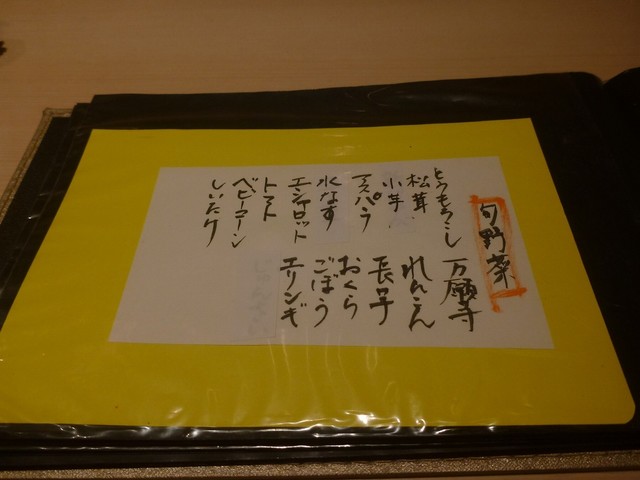 旬野菜
とうもろこし
万願寺
松茸
れんこん
小芋
長芋
アスパラ
おくら
水なす
ごぼう
エシャロット
エリンギ
トマト
ベビーコーン
しいたけ